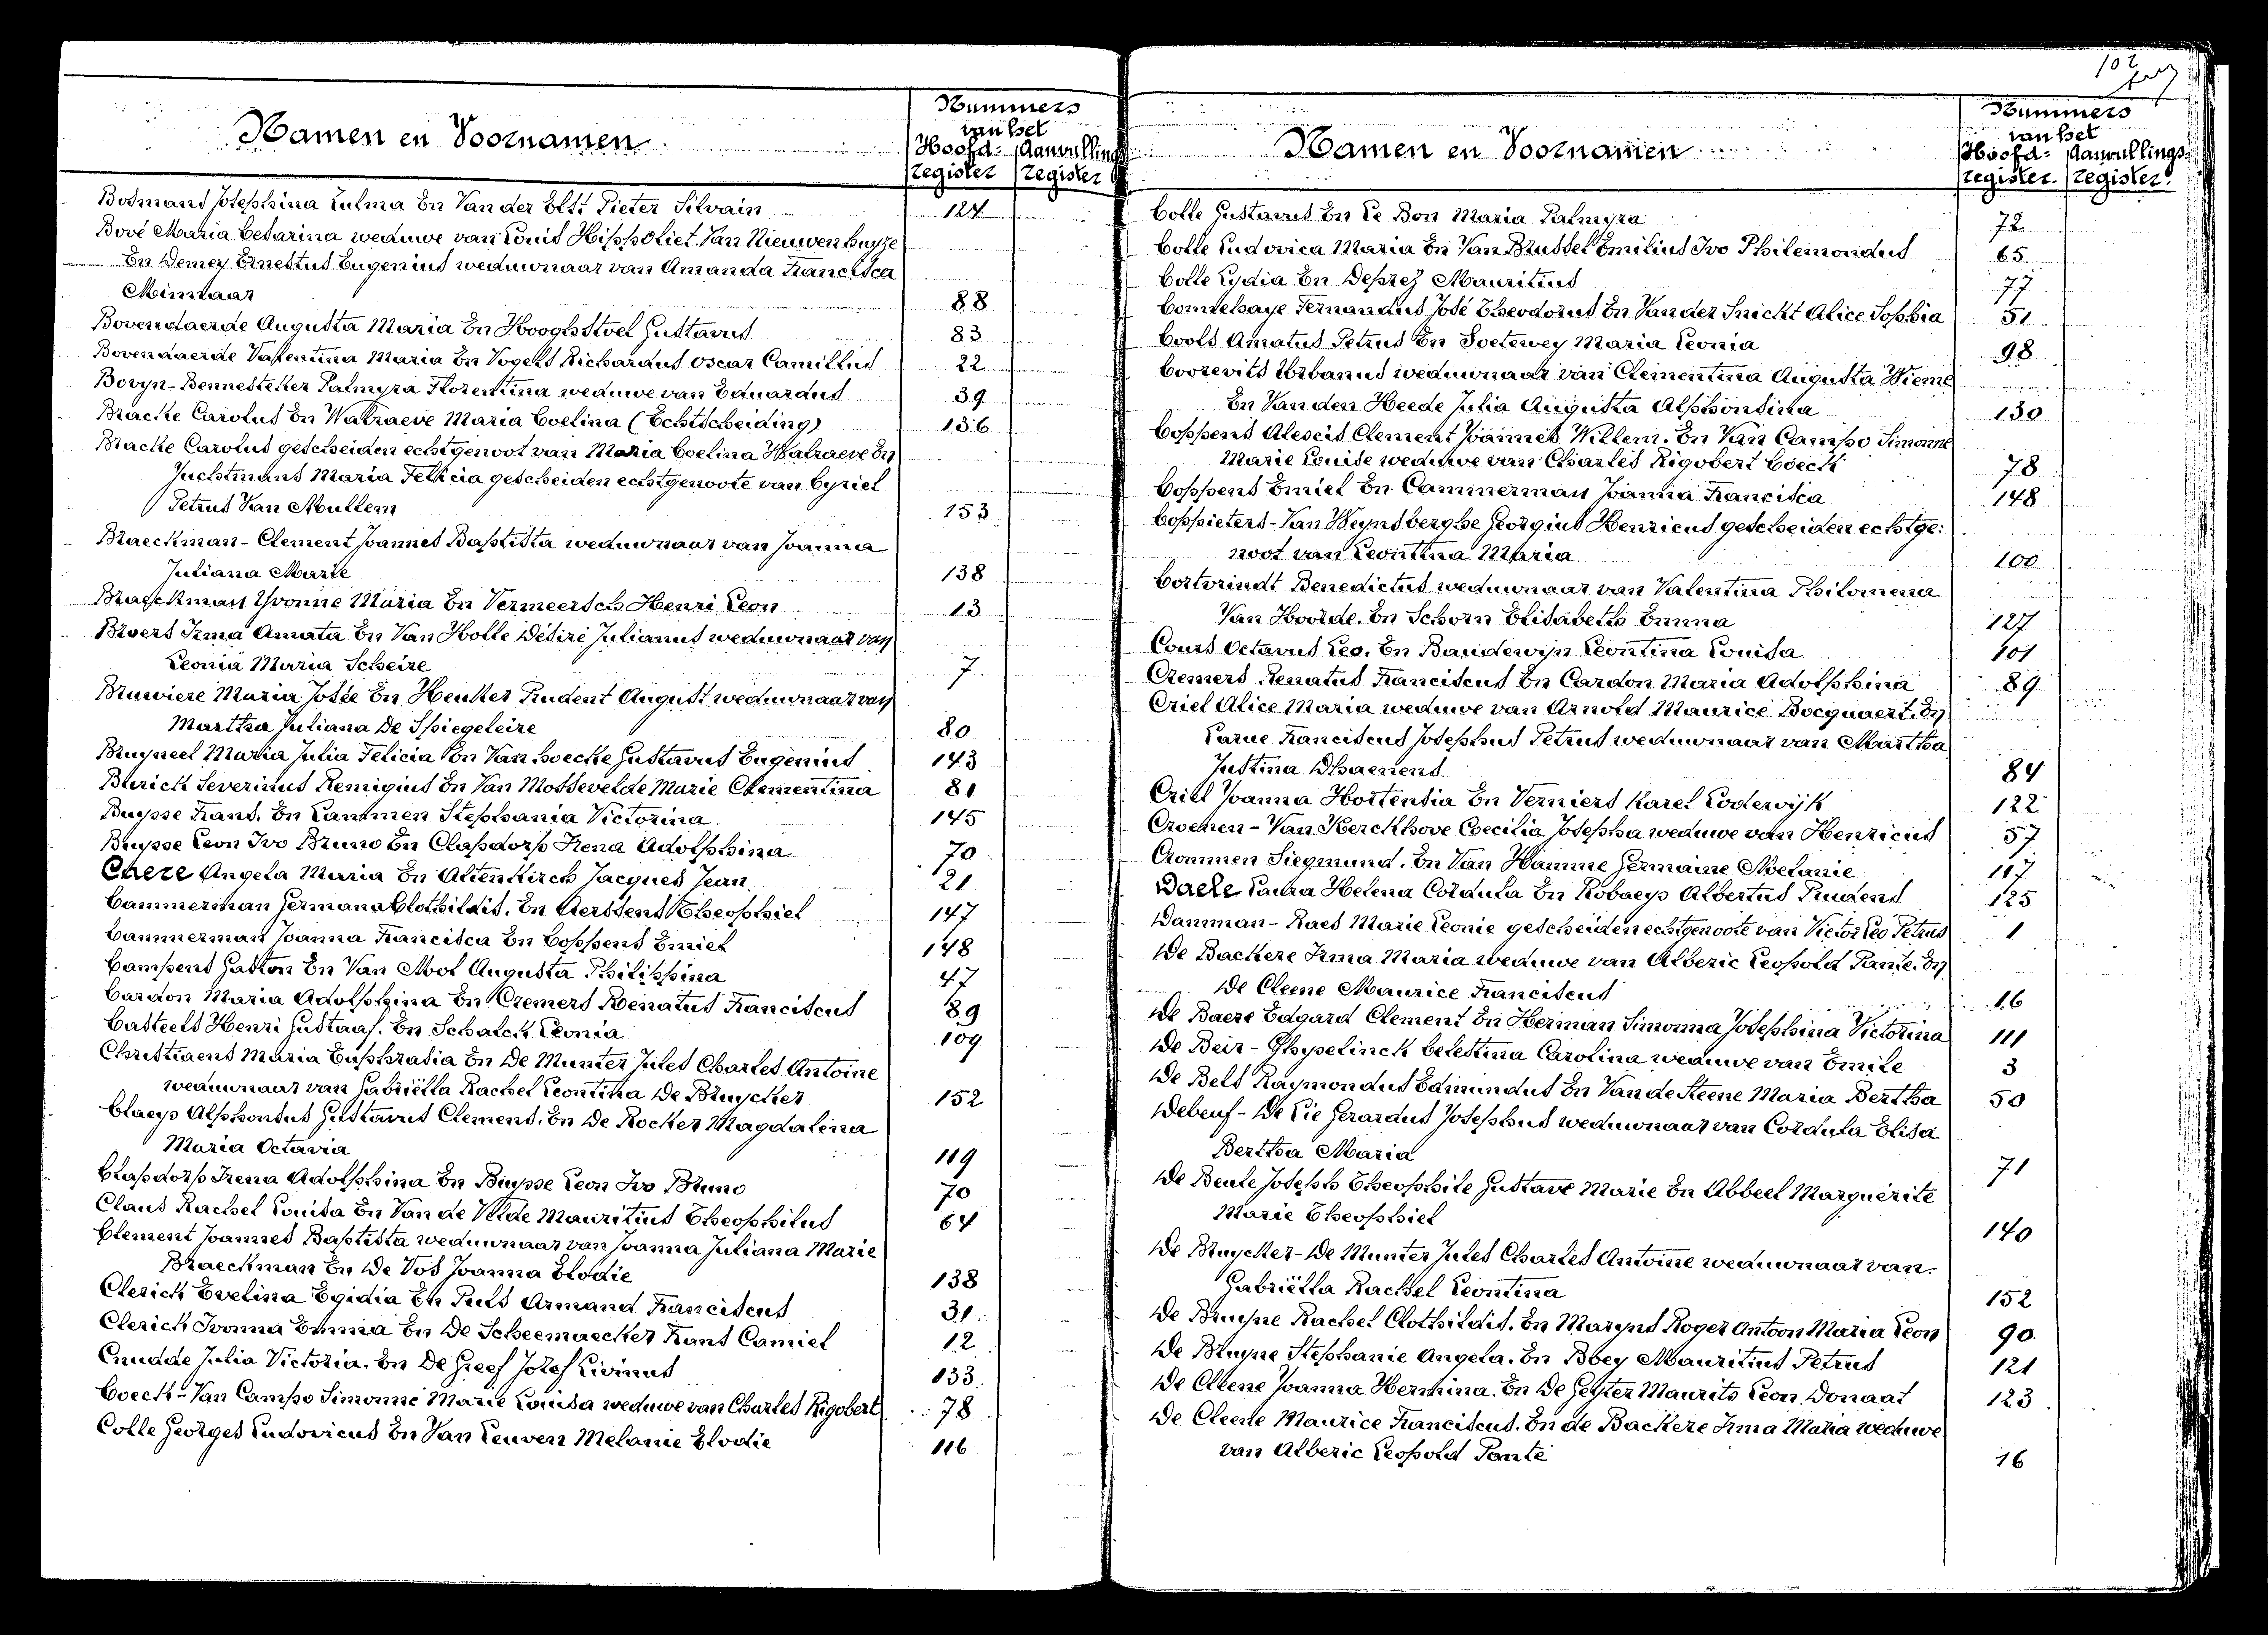 Namen en Voornamen
Nummers
van het
Hoofd- Aanvullings
register register
Bosmans Josephina Zulma En Van der Elst Pieter Silvain 124
Bové Maria Cesarina weduwe van Louis Hippoliet Van Nieuwenhuyze
En Demey Ernestus Eugenius weduwnaar van Amanda Francisca
Minnaar 88
Bovendaerde Augusta Maria En Hooghstoel Gustavus 83
Bovendaerde Valentina Maria En Vogels Richardus Oscar Camillus 22
Bovyn-Bennesteker Palmyra Florentina weduwe van Eduardus 39
Bracke Carolus En Walraeve Maria Coelina (Echtscheiding) 136
Bracke Carolus gescheiden echtgenoot van Maria Coelina Walraeve En
Juchtmans Maria Felicia gescheiden echtgenoote van Cyriel
Petrus Van Mullem 153
Braeckman - Clement Joannes Baptista weduwnaar van Joanna
Juliana Marie 138
Braeckman Yvonne Maria En Vermeersch Henri Leon 13
Broers Irma Amata En Van Holle Désiré Julianus weduwnaar van
Leonia Maria Scheire 7
Bruwiere Maria Josée En Heuker Prudent August weduwnaar van
Martha Juliana De Spiegeleire 80
Bruyneel Maria Julia Felicia En Van hoecke Gustavus Eugenius 143
Burick Severinus Remigius En Van Mossevelde Marie Clementina 81
Buysse Frans. En Lammen Stephania Victorina 145
Buysse Leon Ivo Bruno En Clapdorp Irena Adolphina 70
Caere Angela Maria En Altenkirch Jacques Jean 21
Cammerman Germana Clothildis. En Aerssens Theophiel 147
Cammerman Joanna Francisca En Coppens Emiel 148
Campens Gaston En Van Mol Augusta Philippina 47
Cardon Maria Adolphina En Cremers Renatus Franciscus 89
Casteels Henri Gustaaf. En Schalck Leonia 109
Christiaens Maria Euphrasia En De Munter Jules Charles Antoine
weduwnaar van Gabriëlla Rachel Leontina De Bruycker 152
Claeys Alphonsus Gustavus Clemens. En De Rocker Magdalena
Maria Octavia 119
Clapdorp Irena Adolphina En Buysse Leon Ivo Bruno 70
Claus Rachel Louisa En Van de Velde Mauritius Theophilus 64
Clement Joannes Baptista weduwnaar van Joanna Juliana Marie
Braeckman En De Vos Joanna Elodie 138
Clerick Evelina Egidia En Puls Armand Franciscus 31
Clerick Ivonna Emma En De Scheemaecker Frans Camiel 12
Cnudde Julia Victoria. En De Greef Jozef Livinus 133
Coeck - Van Campo Simonne Marie Louisa weduwe van Charles Rigobert 78
Colle Georges Ludovicus En Van Leuven Melanie Elodie 116
102
Namen en Voornamen
Nummers
van het
Hoofd- Aanvullings-
register. register.
Colle Gustavus En Le Bon Maria Palmyra 72
Colle Ludovica Maria En Van Brussel Emilius Ivo Philemondus 65
Colle Lydia En Deprez Mauritius 77
Comtehaye Fernandus José Theodorus En Van der Snickt Alice Sophia 51
Cools Amatus Petrus En Soetewey Maria Leonia 98
Coorevits Urbanus weduwnaar van Clementina Augusta Wieme
En Van den Heede Julia Augusta Alphonsina 130
Coppens Alescis Clement Joannes Willem. En Van Campo Simonne
Marie Louise weduwe van Charles Rigobert Coeck 78
Coppens Emiel En Cammerman Joanna Francisca 148
Coppieters - Van Weynsberghe Georgius Henricus gescheiden echtge:
noot van Leontina Maria 100
Cortvrindt Benedictus weduwnaar van Valentina Philomena
Van Hoolde. En Schorn Elisabeth Emma 127
Cours Octavus Leo. En Baudewijn Leontina Louisa 101
Cremers Renatus Franciscus En Cardon Maria Adolphina 89
Criel Alice Maria weduwe van Arnold Maurice Bocquaert. En
Larue Franciscus Josephus Petrus weduwnaar van Martha
Justina Dhaenens 84
Criel Joanna Hortensia En Verniers Karel Lodewijk 122
Croenen - Van Kerckhove Coecilia Josepha weduwe van Henricus 57
Crommen Siegmund. En Van Hamme Germaine Melanie 117
Daele Laura Helena Cordula En Robaeys Albertus Prudens 125
Damman - Raes Marie Leonie gescheiden echtgenoote van Victor Leo Petrus 1
De Backere Irma Maria weduwe van Alberic Leopold Pante. En
De Cleene Maurice Franciscus 16
De Baere Edgard Clement En Herman Simonna Josephina Victorina 111
De Beir - Ghyselinck Celestina Carolina weduwe van Emile 3
De Bels Raymondus Edmundus En Van de Steene Maria Bertha 50
Debeuf - De Lie Gerardus Josephus weduwnaar van Cordula Elisa
Bertha Maria 71
De Beule Joseph Theophile Gustave Marie En Abbeel Marguérite
Marie Theophiel 140
De Bruycker - De Munter Jules Charles Antoine weduwnaar van
Gabriëlla Rachel Leontina 152
De Bruyne Rachel Clothildis. En Maryns Roger Antoon Maria Leon 90
De Bruyne Stephanie Angela. En Bbey Mauritius Petrus 121
De Cleene Joanna Hermina. En De Geyter Maurits Leon Donaat 123
De Cleene Maurice Franciscus. En de Backere Irma Maria weduwe
van Alberic Leopold Pante 16